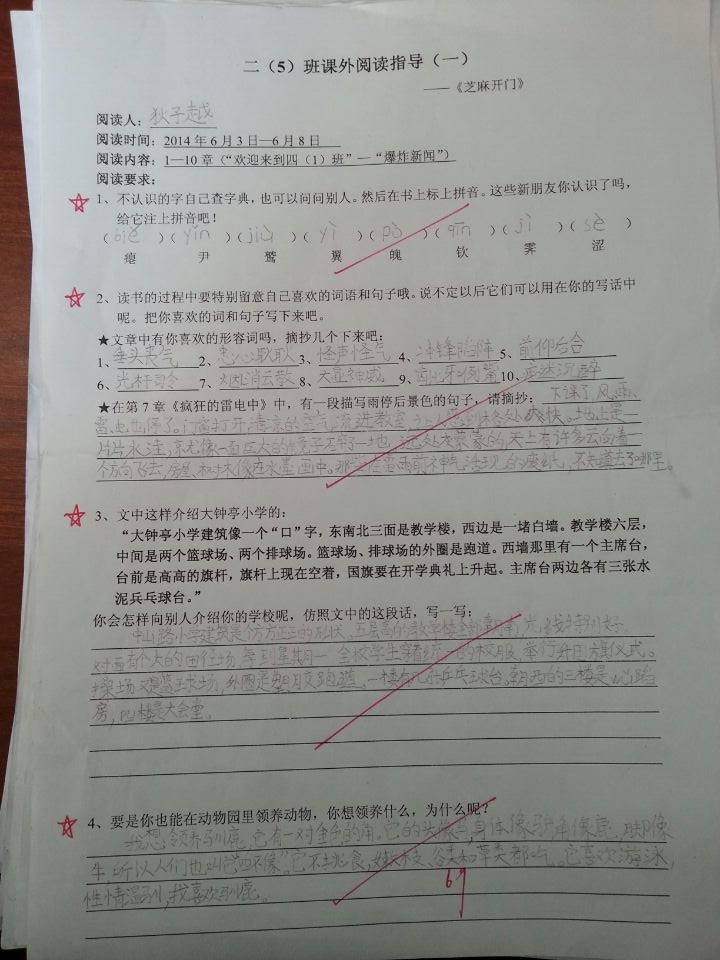 二（5）班课外阅读指导（一）
——《芝麻开门》
阅读人：狄子越
阅读时间：2014年6月3日—6月8日
阅读内容：1—10章（“欢迎来到四（1）班”—“爆炸新闻”）
阅读要求：
1、不认识的字自己查字典，也可以问问别人。然后在书上标上拼音。这些新朋友你认识了吗，
给它注上拼音吧！
（biě）（yǐn）（jiù）（yì）（pò）（qīn）（jì）（sè）
瘪 尹 鹫 翼 魄 钦 霁 涩
2、读书的过程中要特别留意自己喜欢的词语和句子哦。说不定以后它们可以用在你的写话中
呢。把你喜欢的词和句子写下来吧。
★文章中有你喜欢的形容词吗，摘抄几个下来吧：
1、垂头丧气 2、忠心耿耿 3、怪声怪气 4、冲锋陷阵 5、前仰后合
6、光杆司令 7、烟消云散 8、大显神威 9、 10、
★在第7章《疯狂的雷电中》中，有一段描写雨停后景色的句子，请摘抄：下课了，风、雨、
雷、电也停了。门窗打开，清凉的空气流进教室，感到快爽快。地上是一
片片水洼，就像一面巨大的镜子一地，远处灰蒙蒙的，天上有许多云向着
个方向飞去，房屋和树木像在水墨画中。那些在雷雨前神气活现的废纸，不知道去了哪里。
3、文中这样介绍大钟亭小学的：
“大钟亭小学建筑像一个“口”字，东南北三面是教学楼，西边是一堵白墙。教学楼六层，
中间是两个篮球场、两个排球场。篮球场、排球场的外圈是跑道。西墙那里有一个主席台，
台前是高高的旗杆，旗杆上现在空着，国旗要在开学典礼上升起。主席台两边各有三张水
泥兵乓球台。”
你会怎样向别人介绍你的学校呢，仿照文中的这段话，写一写：
中山路小学建筑是个方方正正的形状，五层高的教学楼全部朝南，光线特别好。
对面有个大的田径场，每到星期一，全校学生穿着统一的校服，举行升国旗仪式。
操场又是篮球场，外圈是塑胶跑道，一楼有几张乒乓球台。朝西的三楼是舞蹈
房，四楼是大会堂。
4、要是你也能在动物园里领养动物，你想领养什么，为什么呢？
我想领养驯鹿，它有一对金色的角。它的头像马，身体像驴，角像鹿，脚像
牛，所以人们也叫它“四不像”。它不挑食，嫩枝、谷类和草类都吃。它喜欢游泳，
性情温驯，我喜欢驯鹿。
6.9